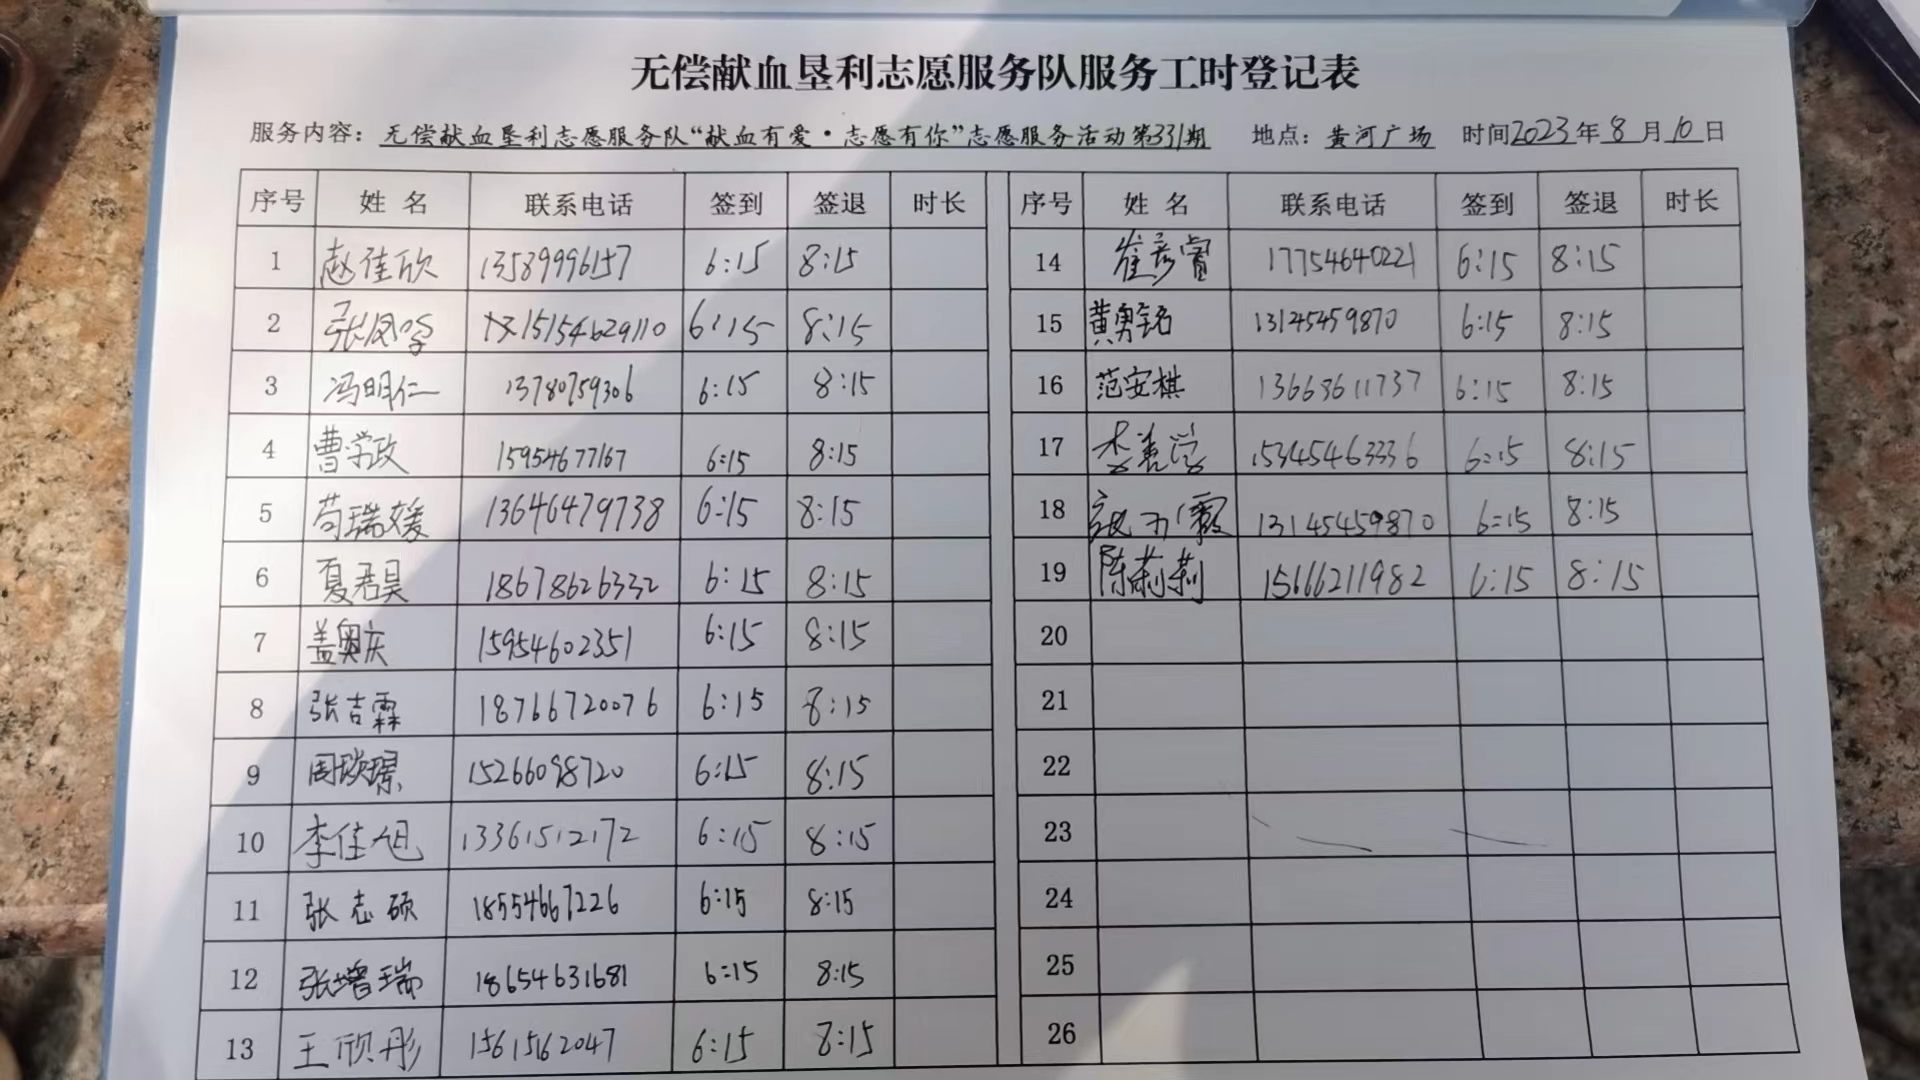 无偿献血垦利志愿服务队服务工时登记表
服务内容：无偿献血垦利志愿服务队“献血有爱·志愿有你”志愿服务活动第331期 地点：黄河广场 时间2023年8月10日
序号 姓名 联系电话 签到 签退 时长 序号 姓名 联系电话 签到 签退 时长
1 赵佳欣 13589996157 6:15 8:15 14 崔彦霄 17754640221 6:15 8:15
2 张凤学 15154629110 6:15 8:15 15 黄勇铭 13145459870 6:15 8:15
3 冯明仁 13780759306 6:15 8:15 16 范安棋 13663611737 6:15 8:15
4 曹学政 15954677167 6:15 8:15 17 15345463336 6:15 8:15
5 苟瑞媛 13646479738 6:15 8:15 18 13145459870 6:15 8:15
6 夏君昊 18678626332 6:15 8:15 19 陈莉莉 15666211982 6:15 8:15
7 盖奥庆 15954602351 6:15 8:15 20
8 张吉霖 18766720076 6:15 8:15 21
9 周琰璟 15266098720 6:15 8:15 22
10 李佳旭 13361512172 6:15 8:15 23
11 张志硕 18554667226 6:15 8:15 24
12 张增瑞 18654631681 6:15 8:15 25
13 王欣彤 15615162047 6:15 8:15 26